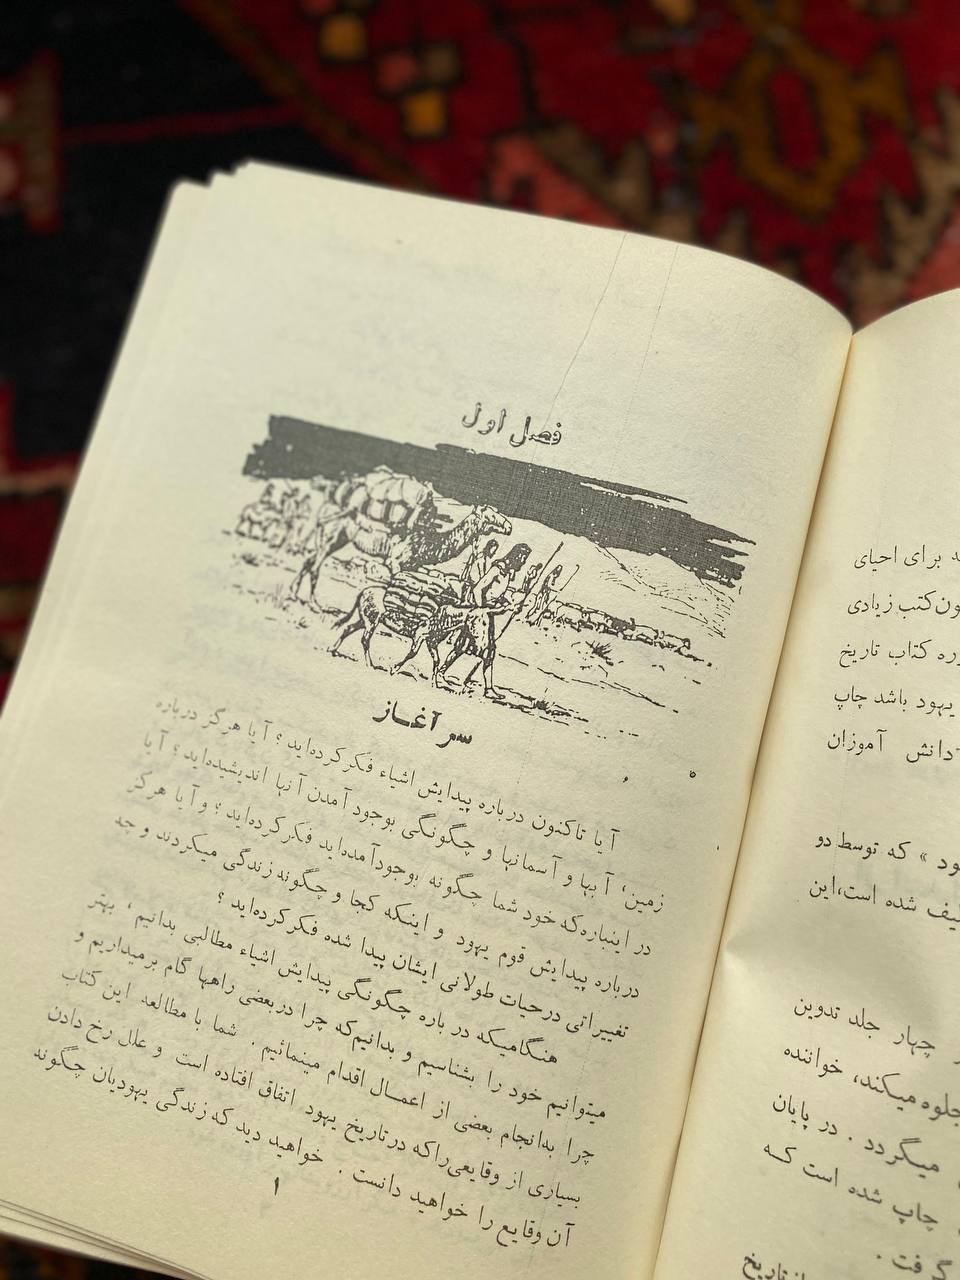 ه برای احیای
ون کتب زیادی
وره کتاب تاریخ
یهود باشد چاپ
دانش آموزان
ود » که توسط دو
لیف شده است، این
چهار جلد تدوین
جلوه میکند، خواننده
میگردد . در پایان
چاپ شده است کسه
گرفت .
از تاریخ
فصل اول
سر آغــاز
آیا تاکنون درباره پیدایش اشیاء فکر کرده‌اید ؟ آیا هرگز درباره
زمین، آبها و آسمانها و چگونگی بوجود آمدن آنها اندیشیده‌اید ؟ آیا
در اینباره که خود شما چگونه بوجود آمده‌اید فکر کرده‌اید ؛ و آیا هرگز
درباره پیدایش قوم یهود و اینکه کجا و چگونه زندگی میکردند و چه
تغییراتی در حیات طولانی ایشان پیدا شده فکر کرده‌اید ؟
هنگامیکه در باره چگونگی پیدایش اشیاء مطالبی بدانیم، بهتر
میتوانیم خود را بشناسیم و بدانیم که چرا در بعضی راهها گام برمیداریم و
چرا بدانجام بعضی از اعمــال اقدام مینمائیم . شما با مطالعه این کتاب
بسیاری از وقایعی را که در تاریخ یهود اتفاق افتاده است و علل رخ دادن
آن وقایع را خواهید دانست . خواهید دید که زندگی یهودیان چگونه
۱